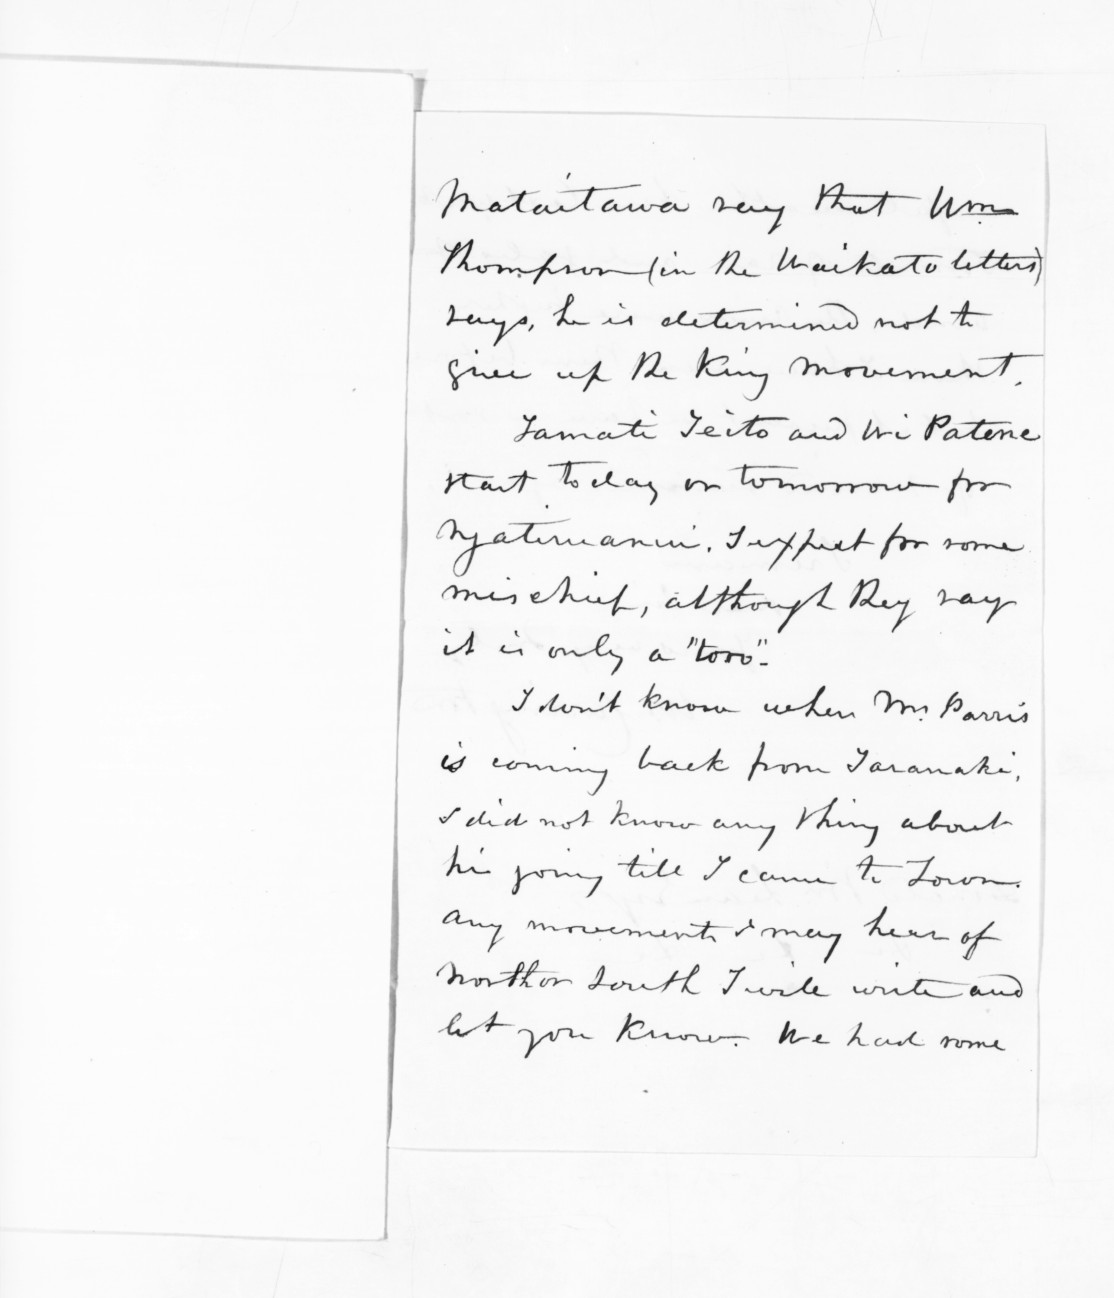 Mataitawa say that Wm
Thompson (in the Waikato letters)
says, he is determined not to
give up the King movement.
Tamati Teito and Wi Patene
start today or tomorrow for
Ngatiruanui. I expect for some
mischief, although they say
it is only a "toro".
I don't know when Mr. Parris
is coming back from Taranaki,
I did not know any thing about
his going till I came to Town.
any movements I may hear of
North or South I will write and
let you know. We had some